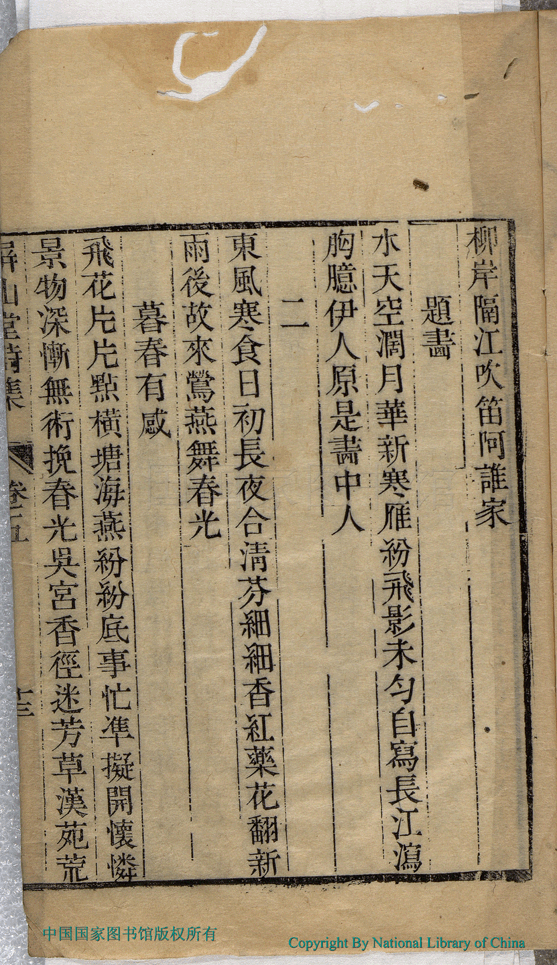 柳岸隔江吹笛阿誰家
題畵
水天空濶月華新寒雁紛飛影未勻自寫長江瀉
胸臆伊人原是畵中人
二
東風寒食日初長夜合清芬細細香紅藥花翻新
雨後故來鶯燕舞春光
暮春有感
飛花片片點橫塘海燕紛紛底事忙準擬開懷憐
景物深慚無術挽春光吳宮香徑迷芳草漢苑荒
屏山堂詩集 卷十五 十三
中国国家图书馆版权所有
Copyright By National Library of China